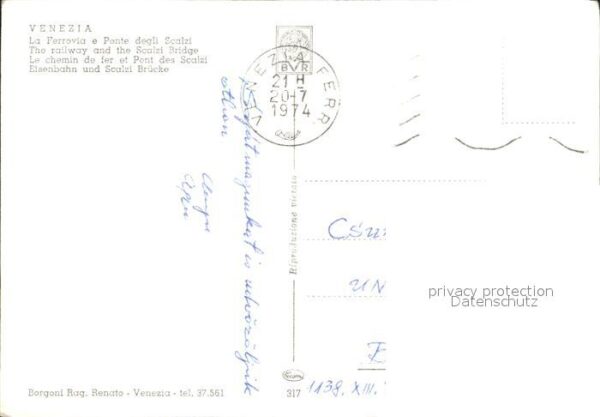 VENEZIA
La Ferrovia e Ponte degli Scalzi
The railway and the Scalzi Bridge
Le chemin de fer et Pont des Scalzi
Eisenbahn und Scalzi Brücke
BVR
VENEZIA FERR
21 H
20-7
1974
magunkat is üdvözöljük
Anyu
Apu
Riproduzione vietata
Csú
UN
B
1138. XIII.
privacy protection
Datenschutz
Borgoni Rag. Renato - Venezia - tel. 37.561
317